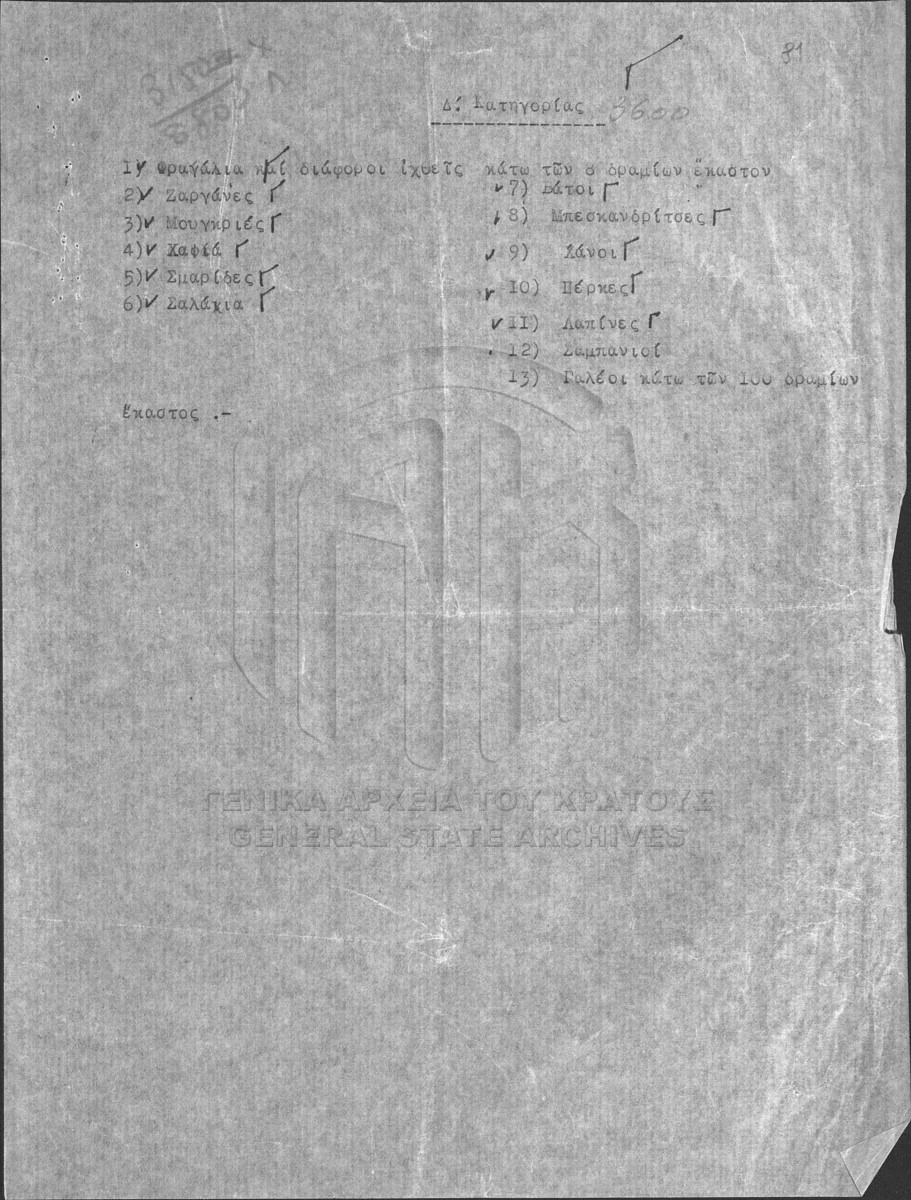 81
Δ: Κατηγορίας 3600
1) Φραγάλια καί διάφοροι ἰχθεῖς κάτω τῶν 8 δραμίων ἕκαστον
2) Ζαργάνες 7) Βάτοι "
3) Μουγκριές 8) Μπεσκανδρίτσες
4) Χαφιά 9) Χάνοι
5) Σμαρίδες 10) Πέρκες
6) Σαλάχια 11) Λαπίνες
12) Σαμπανιοί
13) Γαλέοι κάτω τῶν 100 δραμίων
ἕκαστος .-
ΓΕΝΙΚΑ ΑΡΧΕΙΑ ΤΟΥ ΚΡΑΤΟΥΣ
GENERAL STATE ARCHIVES